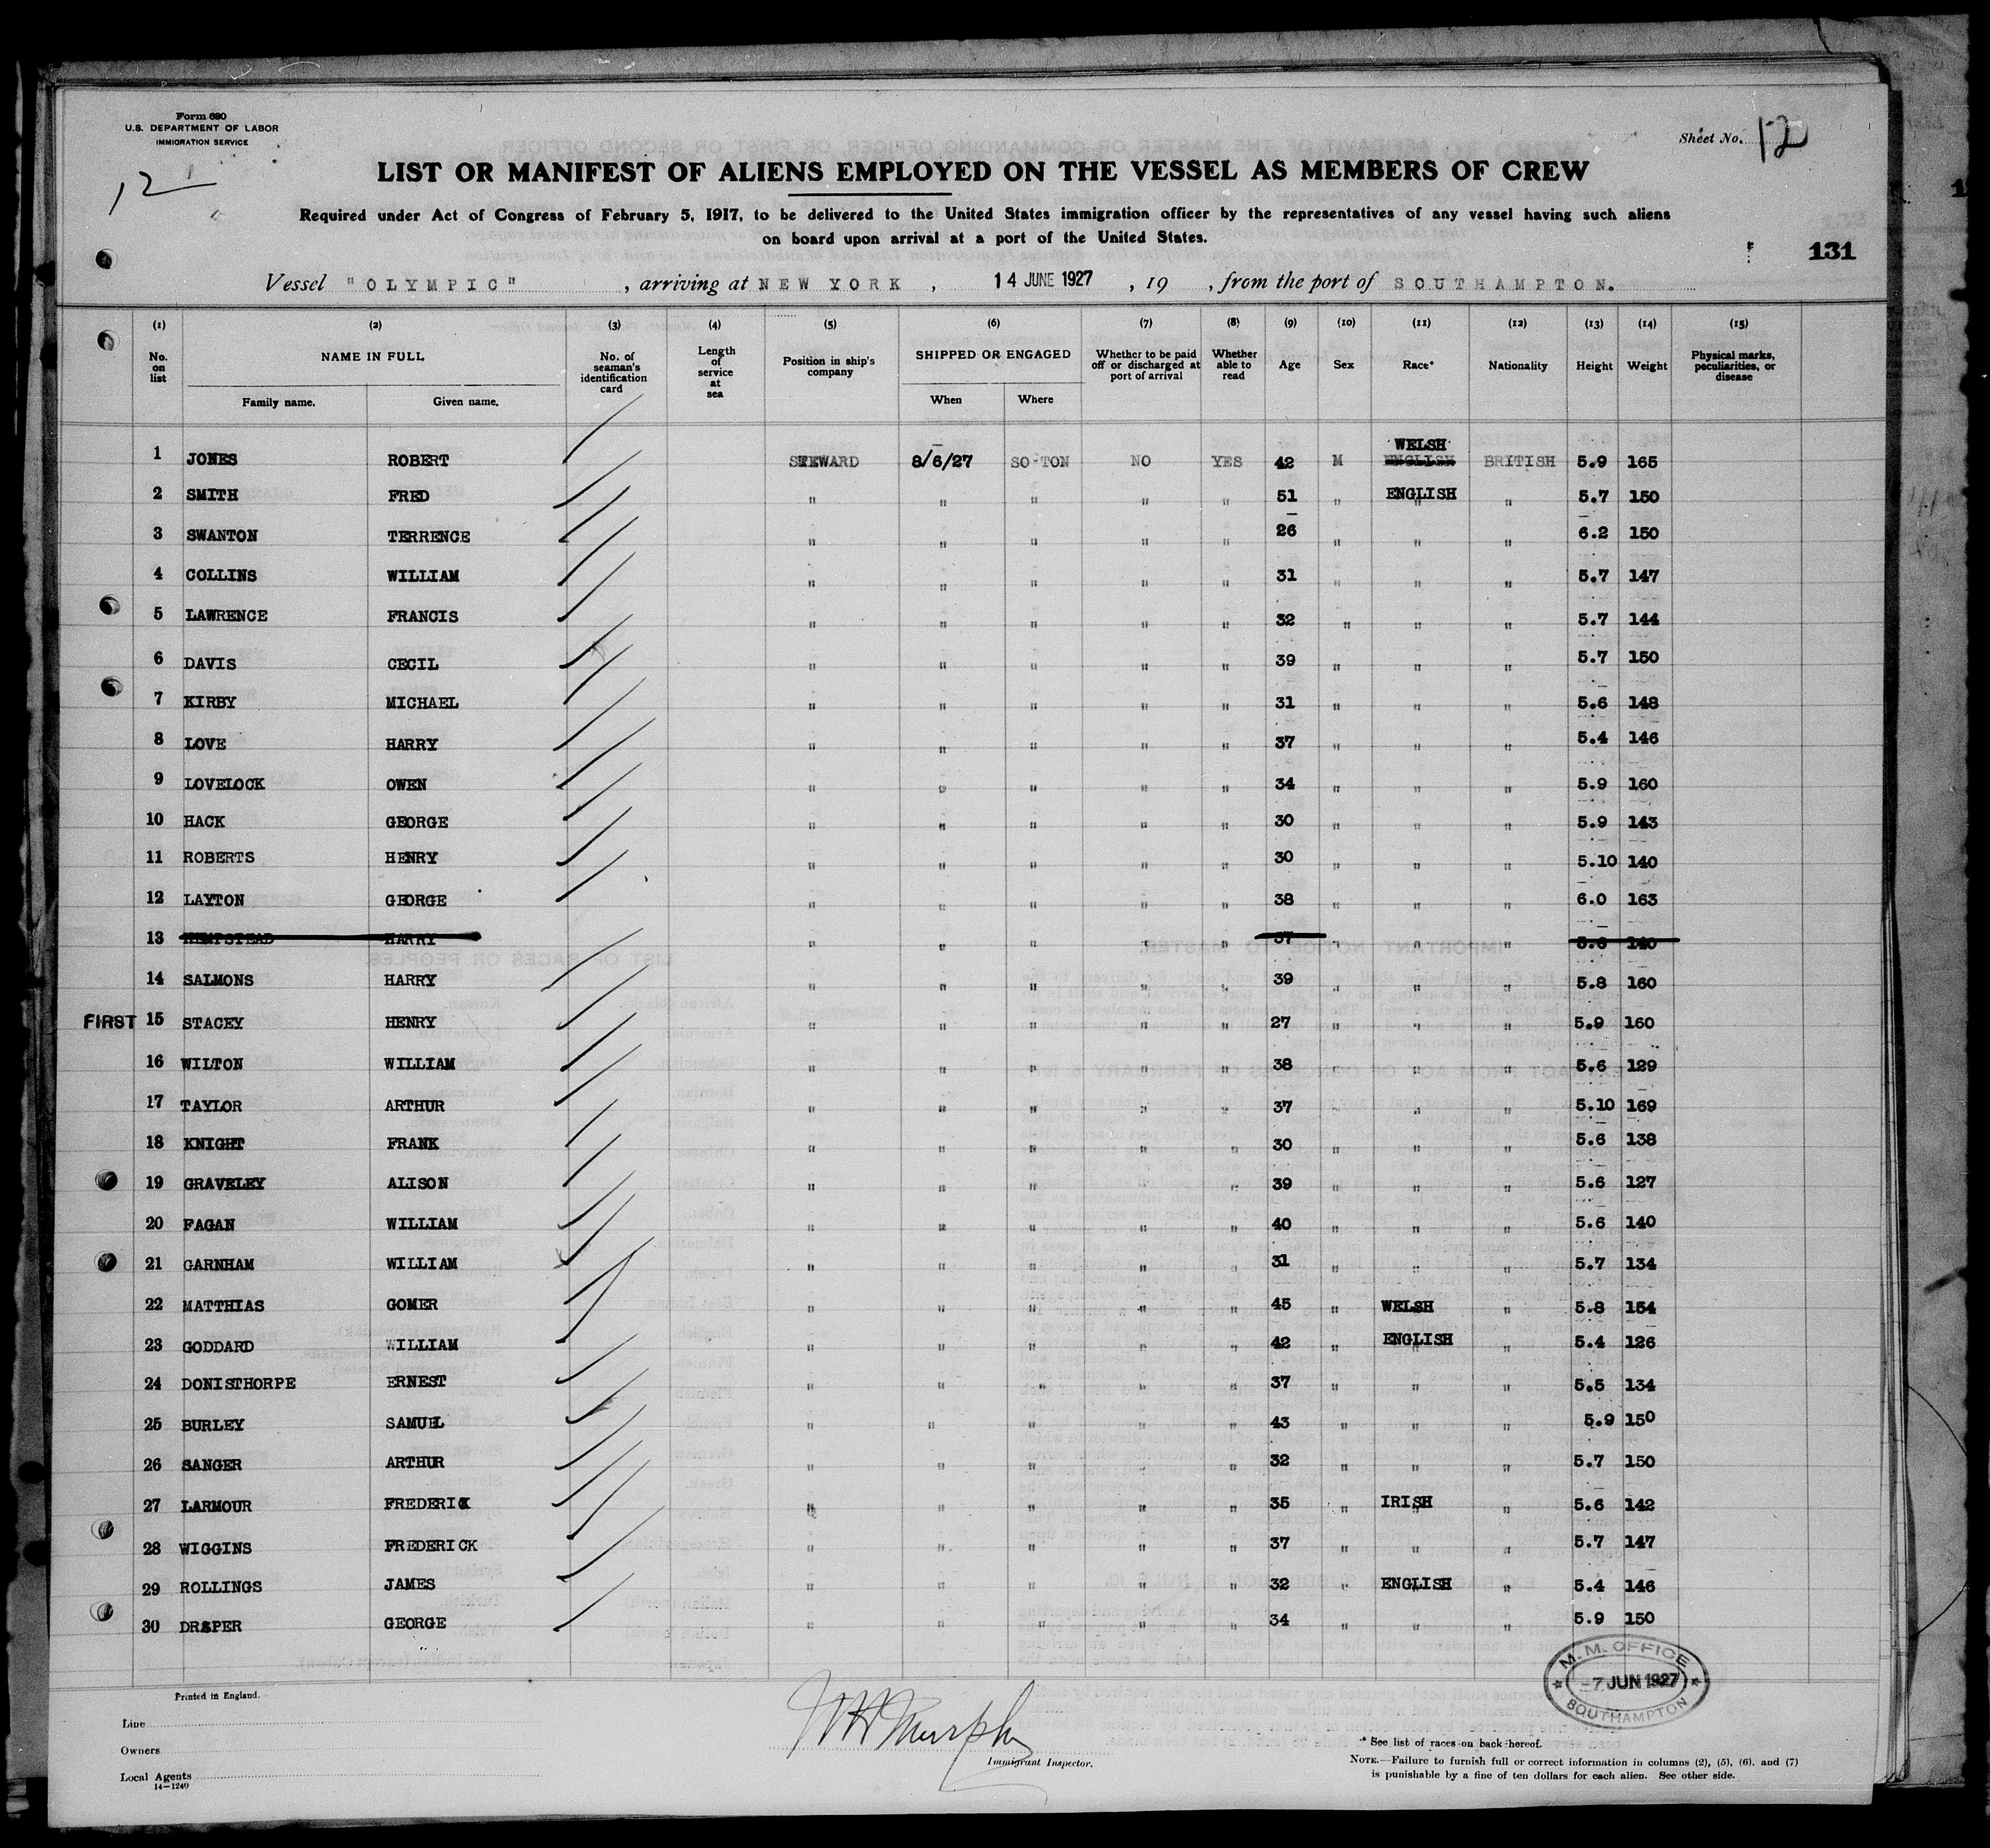 Form 680
U.S. DEPARTMENT OF LABOR
IMMIGRATION SERVICE
12
Sheet No. 12
LIST OR MANIFEST OF ALIENS EMPLOYED ON THE VESSEL AS MEMBERS OF CREW
Required under Act of Congress of February 5, 1917, to be delivered to the United States immigration officer by the representatives of any vessel having such aliens
on board upon arrival at a port of the United States.
131
Vessel "OLYMPIC" , arriving at NEW YORK , 14 JUNE 1927 , 19 , from the port of SOUTHAMPTON.
(1) (2) (3) (4) (5) (6) (7) (8) (9) (10) (11) (12) (13) (14) (15)
No. on list NAME IN FULL No. of seaman's identification card Length of service at sea Position in ship's company SHIPPED OR ENGAGED Whether to be paid off or discharged at port of arrival Whether able to read Age Sex Race* Nationality Height Weight Physical marks, peculiarities, or disease
Family name. Given name. When Where
WELSH
1 JONES ROBERT STEWARD 8/6/27 SO-TON NO YES 42 M ENGLISH BRITISH 5.9 165
2 SMITH FRED " " " " " 51 " ENGLISH " 5.7 150
3 SWANTON TERRENCE " " " " " 26 " " " 6.2 150
4 COLLINS WILLIAM " " " " " 31 " " " 5.7 147
5 LAWRENCE FRANCIS " " " " " 32 " " " 5.7 144
6 DAVIS CECIL " " " " " 39 " " " 5.7 150
7 KIRBY MICHAEL " " " " " 31 " " " 5.6 148
8 LOVE HARRY " " " " " 37 " " " 5.4 146
9 LOVELOCK OWEN " " " " " 34 " " " 5.9 160
10 HACK GEORGE " " " " " 30 " " " 5.9 143
11 ROBERTS HENRY " " " " " 30 " " " 5.10 140
12 LAYTON GEORGE " " " " " 38 " " " 6.0 163
13 HEMPSTEAD HARRY " " " " " 37 " " " 5.6 140
14 SALMONS HARRY " " " " " 39 " " " 5.8 160
FIRST 15 STACEY HENRY " " " " " 27 " " " 5.9 160
16 WILTON WILLIAM " " " " " 38 " " " 5.6 129
17 TAYLOR ARTHUR " " " " " 37 " " " 5.10 169
18 KNIGHT FRANK " " " " " 30 " " " 5.6 138
19 GRAVELEY ALISON " " " " " 39 " " " 5.6 127
20 FAGAN WILLIAM " " " " " 40 " " " 5.6 140
21 GARNHAM WILLIAM " " " " " 31 " " " 5.7 134
22 MATTHIAS GOMER " " " " " 45 " WELSH " 5.8 154
23 GODDARD WILLIAM " " " " " 42 " ENGLISH " 5.4 126
24 DONISTHORPE ERNEST " " " " " 37 " " " 5.5 134
25 BURLEY SAMUEL " " " " " 43 " " " 5.9 150
26 SANGER ARTHUR " " " " " 32 " " " 5.7 150
27 LARMOUR FREDERICK " " " " " 35 " IRISH " 5.6 142
28 WIGGINS FREDERICK " " " " " 37 " " " 5.7 147
29 ROLLINGS JAMES " " " " " 32 " ENGLISH " 5.4 146
30 DRAPER GEORGE " " " " " 34 " " " 5.9 150
M. M. OFFICE
-7 JUN 1927
SOUTHAMPTON
Printed in England.
Line
Owners
Local Agents
14-1240
Murphy
Immigrant Inspector.
* See list of races on back hereof.
NOTE.—Failure to furnish full or correct information in columns (2), (5), (6), and (7)
is punishable by a fine of ten dollars for each alien. See other side.